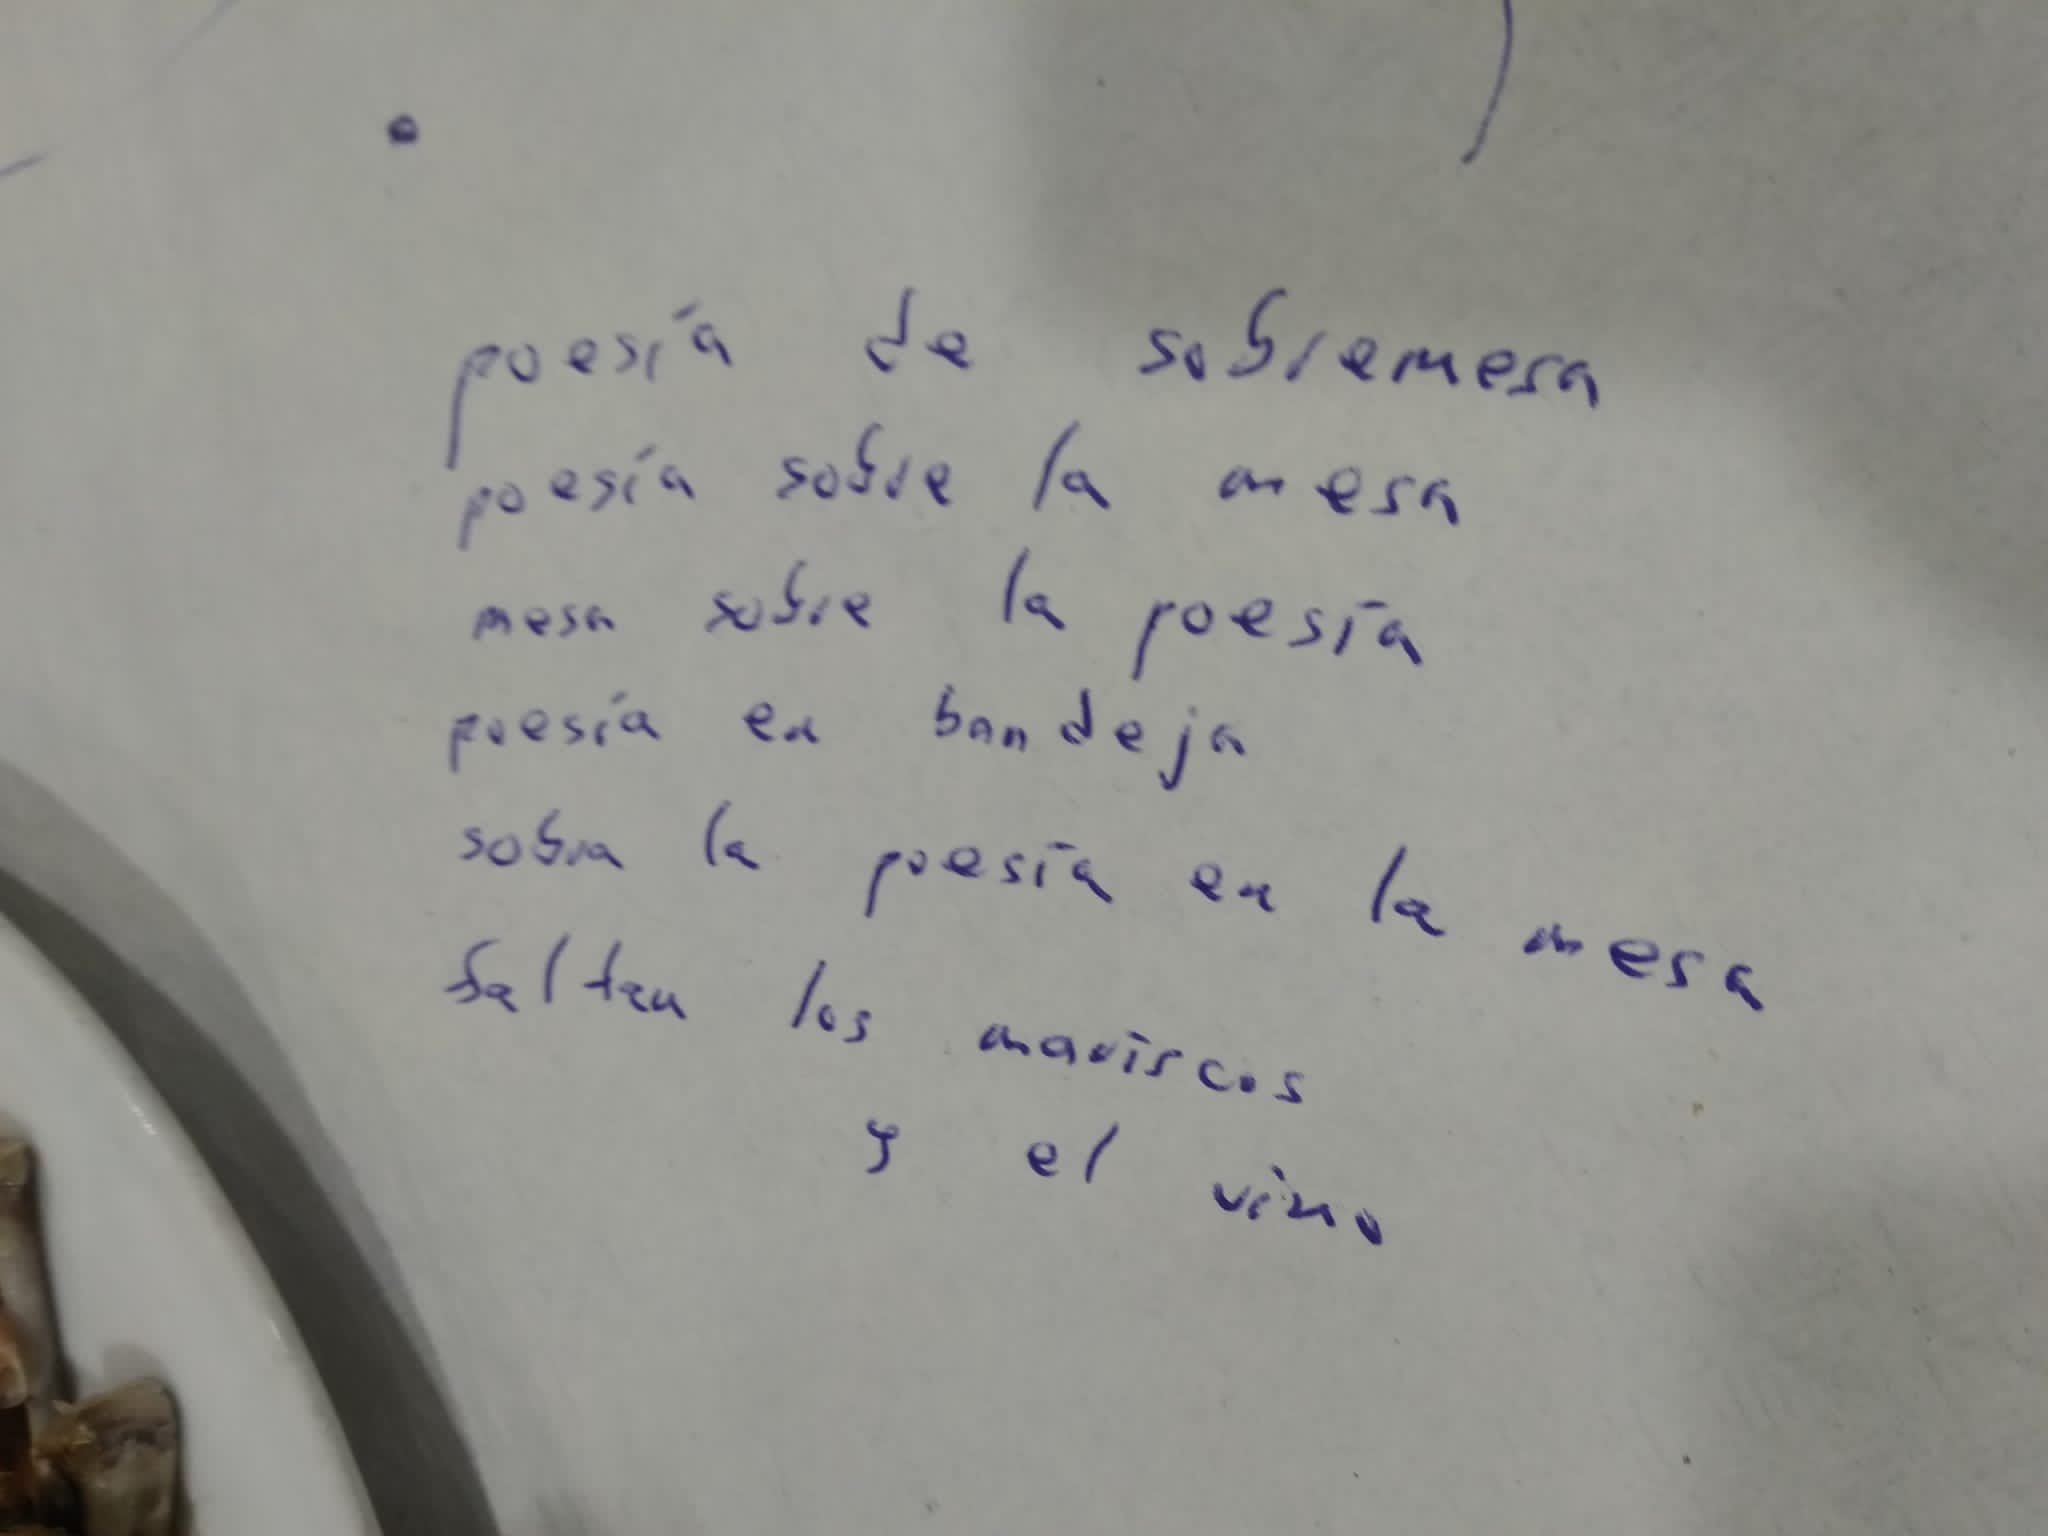 poesía de sobremesa
poesía sobre la mesa
mesa sobre la poesía
poesía en bandeja
sobra la poesía en la mesa
faltan los mariscos
y el vino